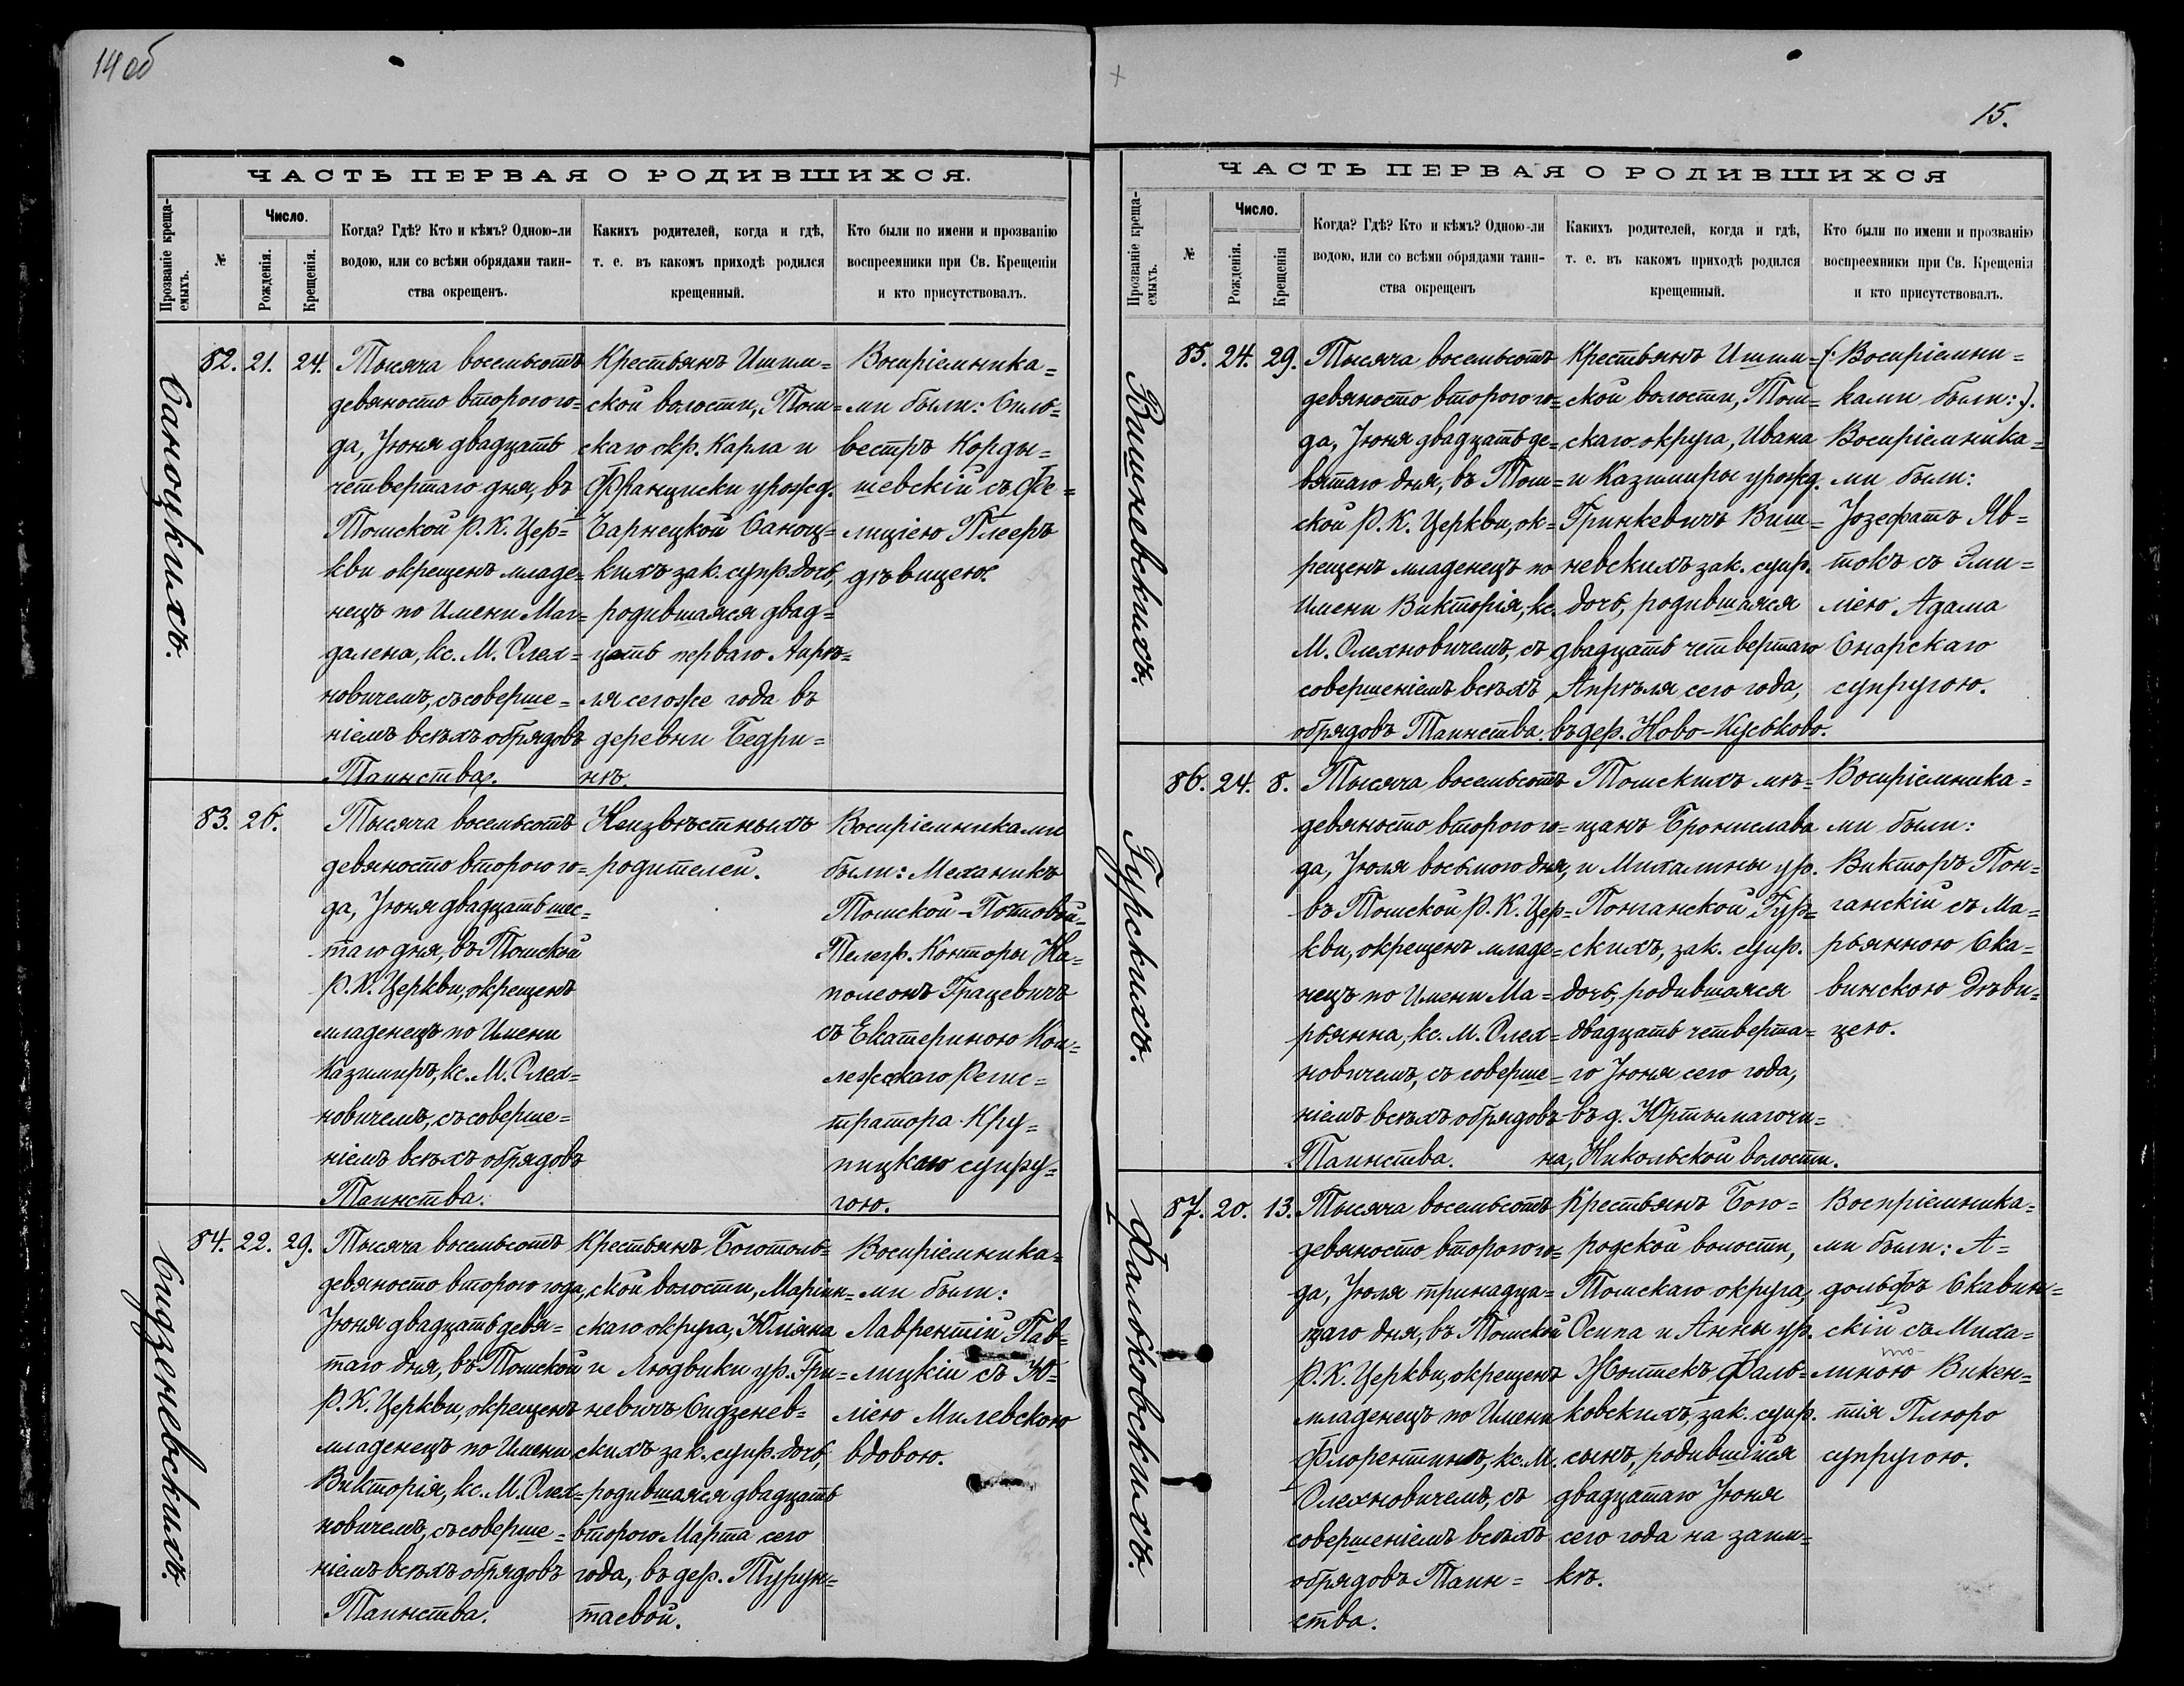 14 об
ЧАСТЬ ПЕРВАЯ О РОДИВШИХСЯ.
Прозваніе креща-
емыхъ.
№
Число.
Рожденія.
Крещенія.
Когда? Гдѣ? Кто и кѣмъ? Одною-ли
водою, или со всѣми обрядами таин-
ства окрещенъ.
Какихъ родителей, когда и гдѣ,
т. е. въ какомъ приходѣ родился
крещенный.
Кто были по имени и прозванію
воспреемники при Св. Крещеніи
и кто присутствовалъ.
Саноцкихъ.
82. 21. 24.
Тысяча восемьсотъ
девяносто второго го=
да, Іюня двадцать
четвертаго дня, въ
Томской Р. К. Цер=
кви окрещенъ младе=
нецъ по Имени Маг=
далена, кс. М. Олех=
новичемъ, съ соверше=
ніемъ всѣхъ обрядовъ
Таинства.
Крестьянъ Ишим=
ской волости, Том=
скаго окр. Карла и
Францишки урожд.
Барнецкой Саноц=
кихъ зак. супр. дочь,
родившаяся двад=
цать перваго Апрѣ=
ля сего же года въ
деревни Бедри=
нѣ.
Воспріемника=
ми были: Силь=
вестръ Корды=
шевскій съ Фе=
лиціею Плееръ
дѣвицею.
83. 26.
Тысяча восемьсотъ
девяносто второго го=
да, Іюня двадцать шес=
таго дня, въ Томской
Р. К. Церкви, окрещенъ
младенецъ по Имени
Казимиръ, кс. М. Олех=
новичемъ, съ соверше=
ніемъ всѣхъ обрядовъ
Таинства.
Неизвѣстныхъ
родителей.
Воспріемниками
были: Механикъ
Томской-Почтовой
Телегр. Конторы На=
полеонъ Грацевичъ
съ Екатериною Кол=
лежскаго Регис=
тратора Кру=
пицкаго супру=
гою.
Сидзеневскихъ.
84. 22. 29.
Тысяча восемьсотъ
девяносто второго года,
Іюня двадцать девя=
таго дня, въ Томской
Р. К. Церкви, окрещенъ
младенецъ по Имени
Викторія, кс. М. Олех=
новичемъ, съ соверше=
ніемъ всѣхъ обрядовъ
Таинства.
Крестьянъ Боготоль=
ской волости, Маріин=
скаго округа, Юліяна
и Людвики ур. Гри=
невичъ Сидзенев=
скихъ зак. супр. дочь,
родившаяся двадцать
второго Марта сего
года, въ дер. Турун=
таевой.
Воспріемника=
ми были:
Лаврентій Пав=
лицкій съ Ю=
ліею Милевскою
вдовою.
15.
ЧАСТЬ ПЕРВАЯ О РОДИВШИХСЯ
Прозваніе креща-
емыхъ.
№
Число.
Рожденія.
Крещенія
Когда? Гдѣ? Кто и кѣмъ? Одною-ли
водою, или со всѣми обрядами таин-
ства окрещенъ
Какихъ родителей, когда и гдѣ,
т. е. въ какомъ приходѣ родился
крещенный.
Кто были по имени и прозванію
воспреемники при Св. Крещенія
и кто присутствовалъ.
Вишневскихъ.
85. 24. 29.
Тысяча восемьсотъ
девяносто второго го=
да, Іюня двадцать де=
вятаго дня, въ Том=
ской Р. К. Церкви, ок=
рещенъ младенецъ по
Имени Викторія, кс.
М. Олехновичемъ, съ
совершеніемъ всѣхъ
обрядовъ Таинства.
Крестьянъ Ишим=
ской волости, Том=
скаго округа, Ивана
и Казимиры урожд.
Гринкевичъ Виш=
невскихъ зак. супр.
дочь, родившаяся
двадцать четвертаго
Апрѣля сего года,
въ дер. Ново-Куськово.
(: Воспріемни=
ками были: ).
Воспріемника=
ми были:
Іозефатъ Яв=
токъ съ Эми=
ліею Адама
Снарскаго
супругою.
Гурскихъ.
86. 24. 8.
Тысяча восемьсотъ
девяносто второго го=
да, Іюля восьмого дня,
въ Томской Р. К. Цер=
кви, окрещенъ младе=
нецъ по Имени Ма=
рьянна, кс. М. Олех=
новичемъ, съ соверше=
ніемъ всѣхъ обрядовъ
Таинства.
Томскихъ мѣ=
щанъ Бронислава
и Михалины ур.
Понганской Гур=
скихъ, зак. супр.
дочь, родившаяся
двадцать четверта=
го Іюня сего года,
въ д. Юртымагочи=
на, Никольской волости.
Воспріемника=
ми были:
Викторъ Пон=
ганскій съ Ма=
рьянною Ска=
винскою дѣви=
цею.
Фальковскихъ.
87. 20. 13.
Тысяча восемьсотъ
девяносто второго го=
да, Іюля тринадца=
таго дня, въ Томской
Р. К. Церкви, окрещенъ
младенецъ по Имени
Флорентинъ, кс. М.
Олехновичемъ, съ
совершеніемъ всѣхъ
обрядовъ Таин=
ства.
Крестьянъ Бого=
родской волости,
Томскаго округа,
Осипа и Анны ур.
Жонтекъ Фаль=
ковскихъ, зак. супр.
сынъ, родившійся
двадцатаго Іюня
сего года на заим=
кѣ.
Воспріемника=
ми были: А=
дольфъ Скавин=
скій съ Миха=
линою Викен=
тія Плюро
супругою.